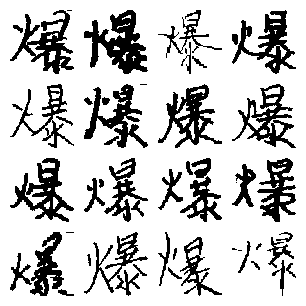 爆爆爆爆
爆爆爆爆
爆爆爆爆
爆爆爆爆